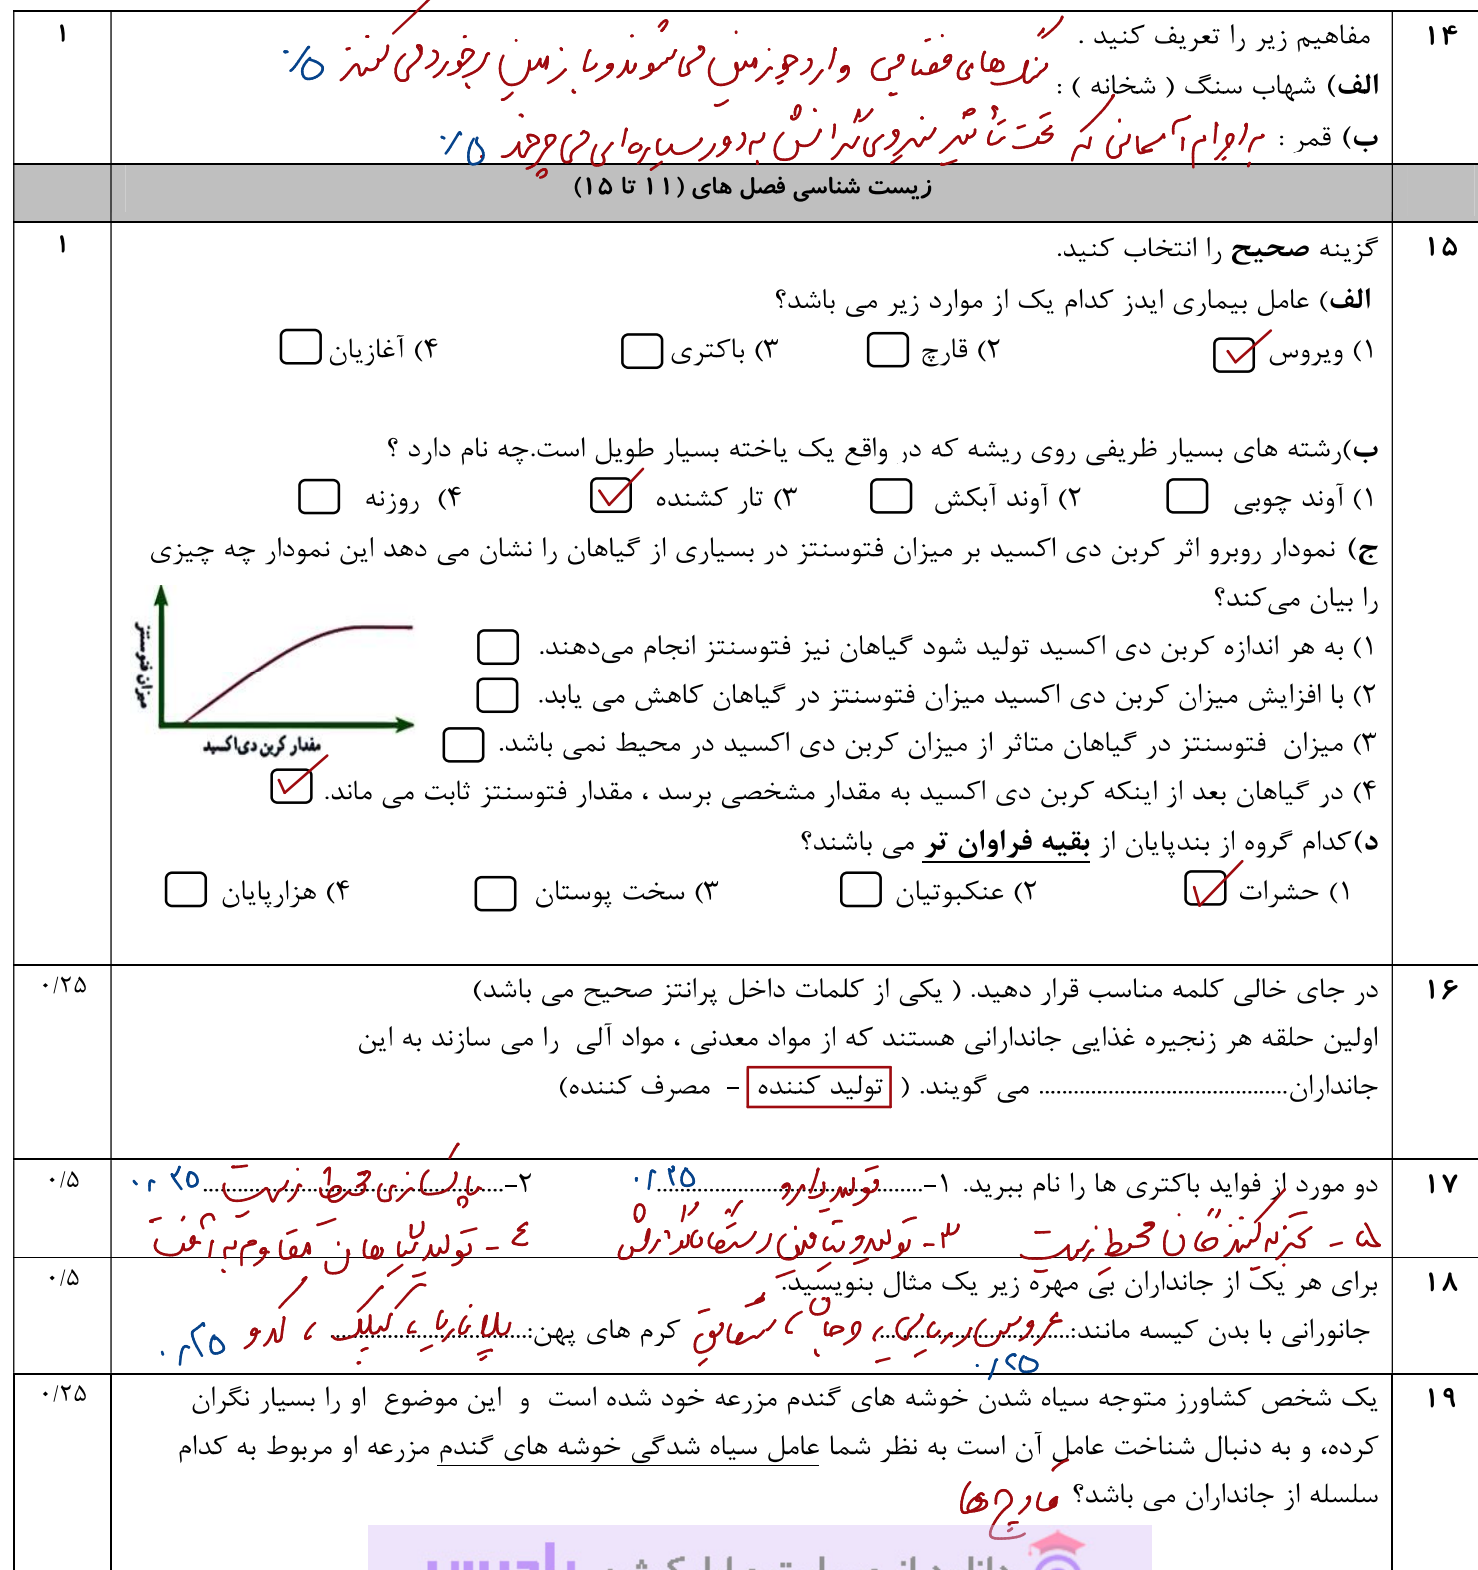 ۱۴
مفاهیم زیر را تعریف کنید .
۱
الف) شهاب سنگ ( شخانه ) : سنگ های فضایی وارد جو زمین می شوند و با زمین برخورد می کنند ۰/۵
ب) قمر : به اجرام آسمانی که تحت تأثیر نیروی گرانش به دور سیاره ای می چرخند ۰/۵
زیست شناسی فصل های (۱۱ تا ۱۵)
۱۵
گزینه صحیح را انتخاب کنید.
۱
الف) عامل بیماری ایدز کدام یک از موارد زیر می باشد؟
۱) ویروس ۲) قارچ ۳) باکتری ۴) آغازیان
ب)رشته های بسیار ظریفی روی ریشه که در واقع یک یاخته بسیار طویل است.چه نام دارد ؟
۱) آوند چوبی ۲) آوند آبکش ۳) تار کشنده ۴) روزنه
ج) نمودار روبرو اثر کربن دی اکسید بر میزان فتوسنتز در بسیاری از گیاهان را نشان می دهد این نمودار چه چیزی
را بیان می‌کند؟
۱) به هر اندازه کربن دی اکسید تولید شود گیاهان نیز فتوسنتز انجام می‌دهند.
۲) با افزایش میزان کربن دی اکسید میزان فتوسنتز در گیاهان کاهش می یابد.
۳) میزان فتوسنتز در گیاهان متاثر از میزان کربن دی اکسید در محیط نمی باشد.
۴) در گیاهان بعد از اینکه کربن دی اکسید به مقدار مشخصی برسد ، مقدار فتوسنتز ثابت می ماند.
میزان فتوسنتز
مقدار کربن دی‌اکسید
د)کدام گروه از بندپایان از بقیه فراوان تر می باشند؟
۱) حشرات ۲) عنکبوتیان ۳) سخت پوستان ۴) هزارپایان
۱۶
در جای خالی کلمه مناسب قرار دهید. ( یکی از کلمات داخل پرانتز صحیح می باشد)
۰/۲۵
اولین حلقه هر زنجیره غذایی جاندارانی هستند که از مواد معدنی ، مواد آلی را می سازند به این
جانداران........................................... می گویند. ( تولید کننده - مصرف کننده)
۱۷
دو مورد از فواید باکتری ها را نام ببرید. ۱- تولید دارو ۰/۲۵ ۲- پاکسازی محیط زیست ۰/۲۵
۰/۵
۵ - تجزیه کنندگان محیط زیست ۳ - تولید ویتامین در دستگاه گوارش ۴ - تولید گیاهان مقاوم به آفت
۱۸
برای هر یک از جانداران بی مهره زیر یک مثال بنویسید.
۰/۵
جانورانی با بدن کیسه مانند: عروس دریایی، مرجان، شقایق ۰/۲۵ کرم های پهن: پلاناریا ، کپلک ، کدو ۰/۲۵
۱۹
یک شخص کشاورز متوجه سیاه شدن خوشه های گندم مزرعه خود شده است و این موضوع او را بسیار نگران
۰/۲۵
کرده، و به دنبال شناخت عامل آن است به نظر شما عامل سیاه شدگی خوشه های گندم مزرعه او مربوط به کدام
سلسله از جانداران می باشد؟ قارچ ها